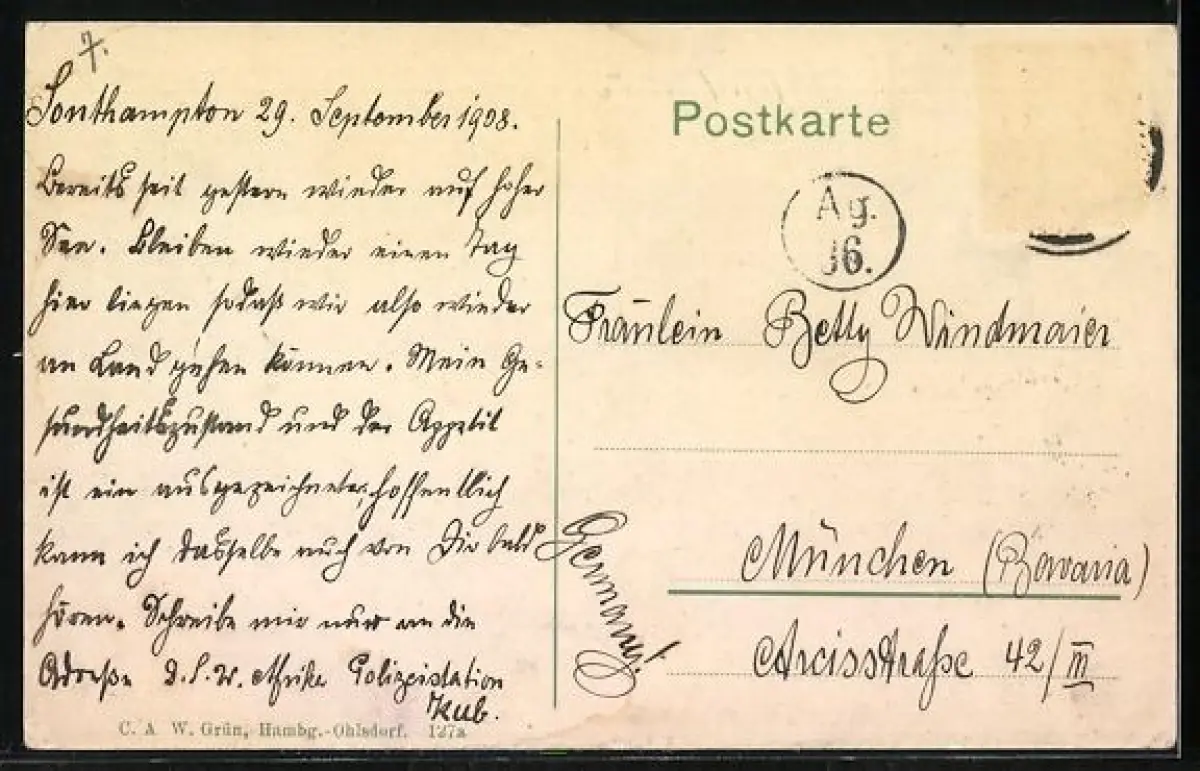 7.
Southampton 29. September 1908.
Bereits seit gestern wieder auf hoher
See. Bleiben wieder einen Tag
hier liegen sodaß wir also wieder
an Land gehen können. Mein Ge-
sundheitszustand und der Appetit
ist ein ausgezeichneter, hoffentlich
kann ich dasselbe auch von Dir bald
hören. Schreibe mir nur an die
Adresse D. S. W. Afrika Polizeistation
Kub.
C. A. W. Grün, Hambg.-Ohlsdorf. 127a
Postkarte
Ag.
36.
Fräulein Betty Windmaier
München (Bavaria)
Germany!
Arcisstraße 42/III